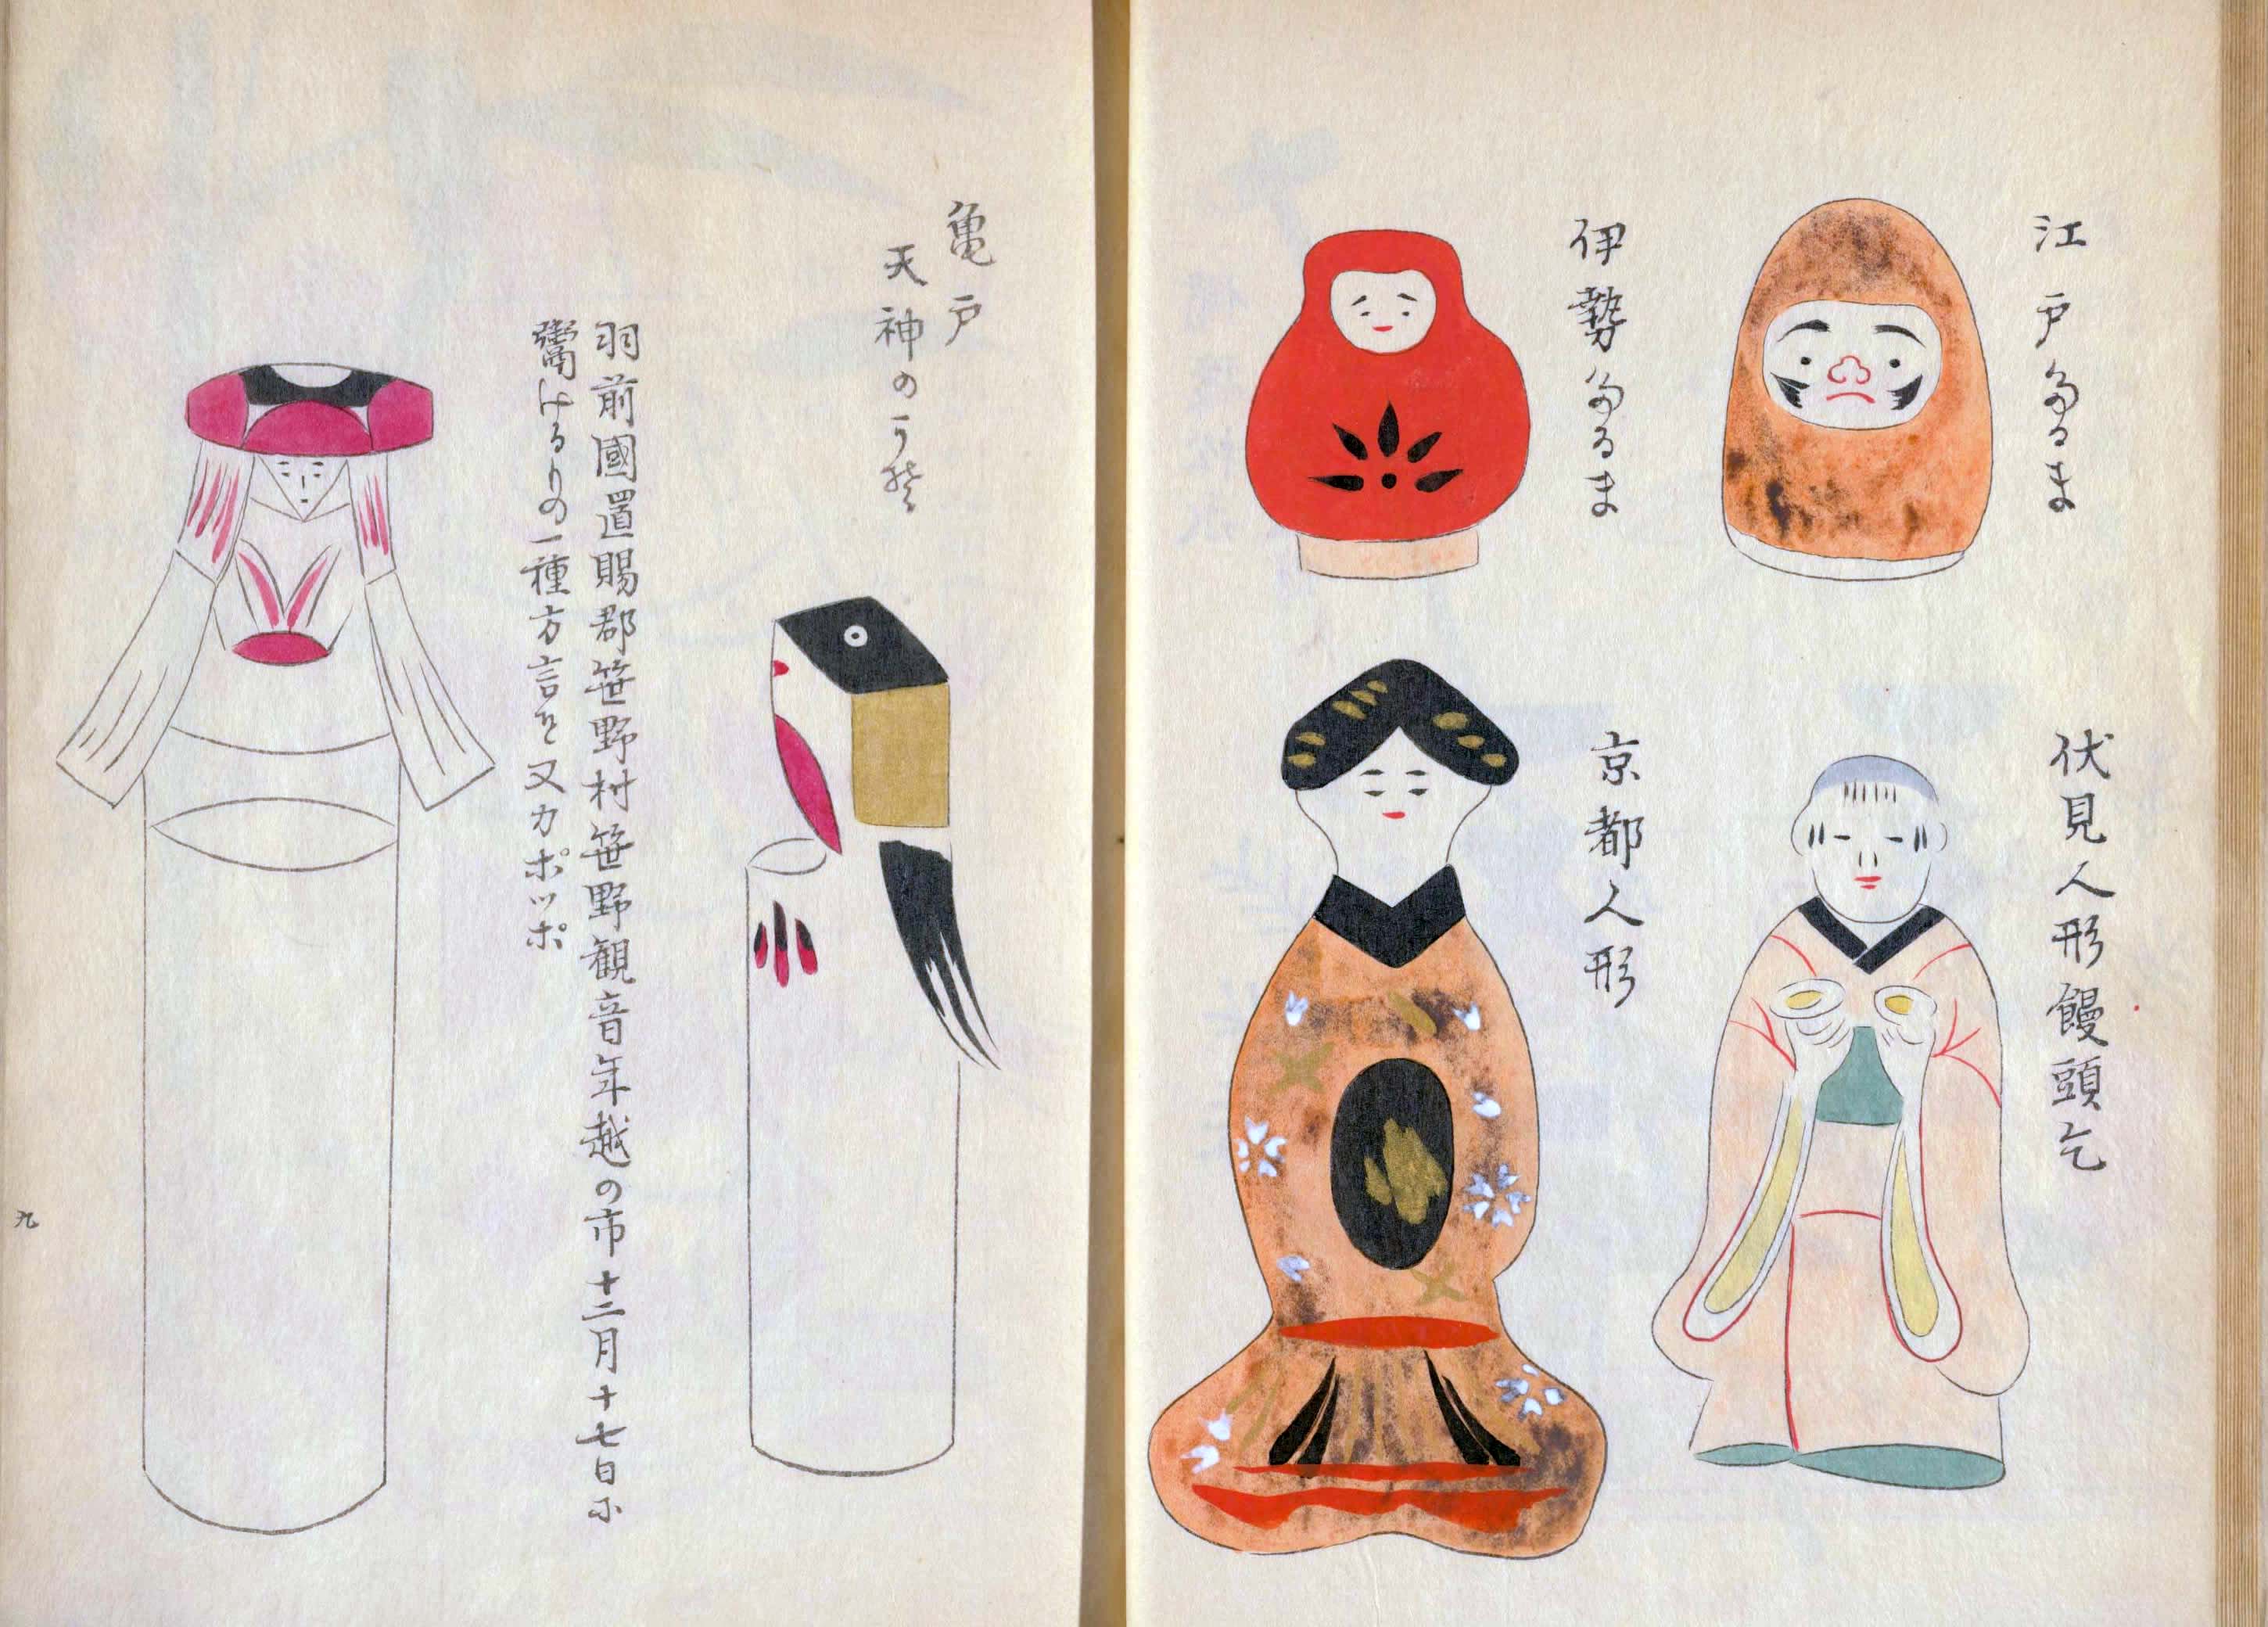 江戸多るま
伊勢多るま
伏見人形饅頭乞
京都人形
亀戸
天神のうそ
羽前國置賜郡笹野村笹野観音年越の市十二月十七日に
鬻けるもの一種方言をタカポッポ
九